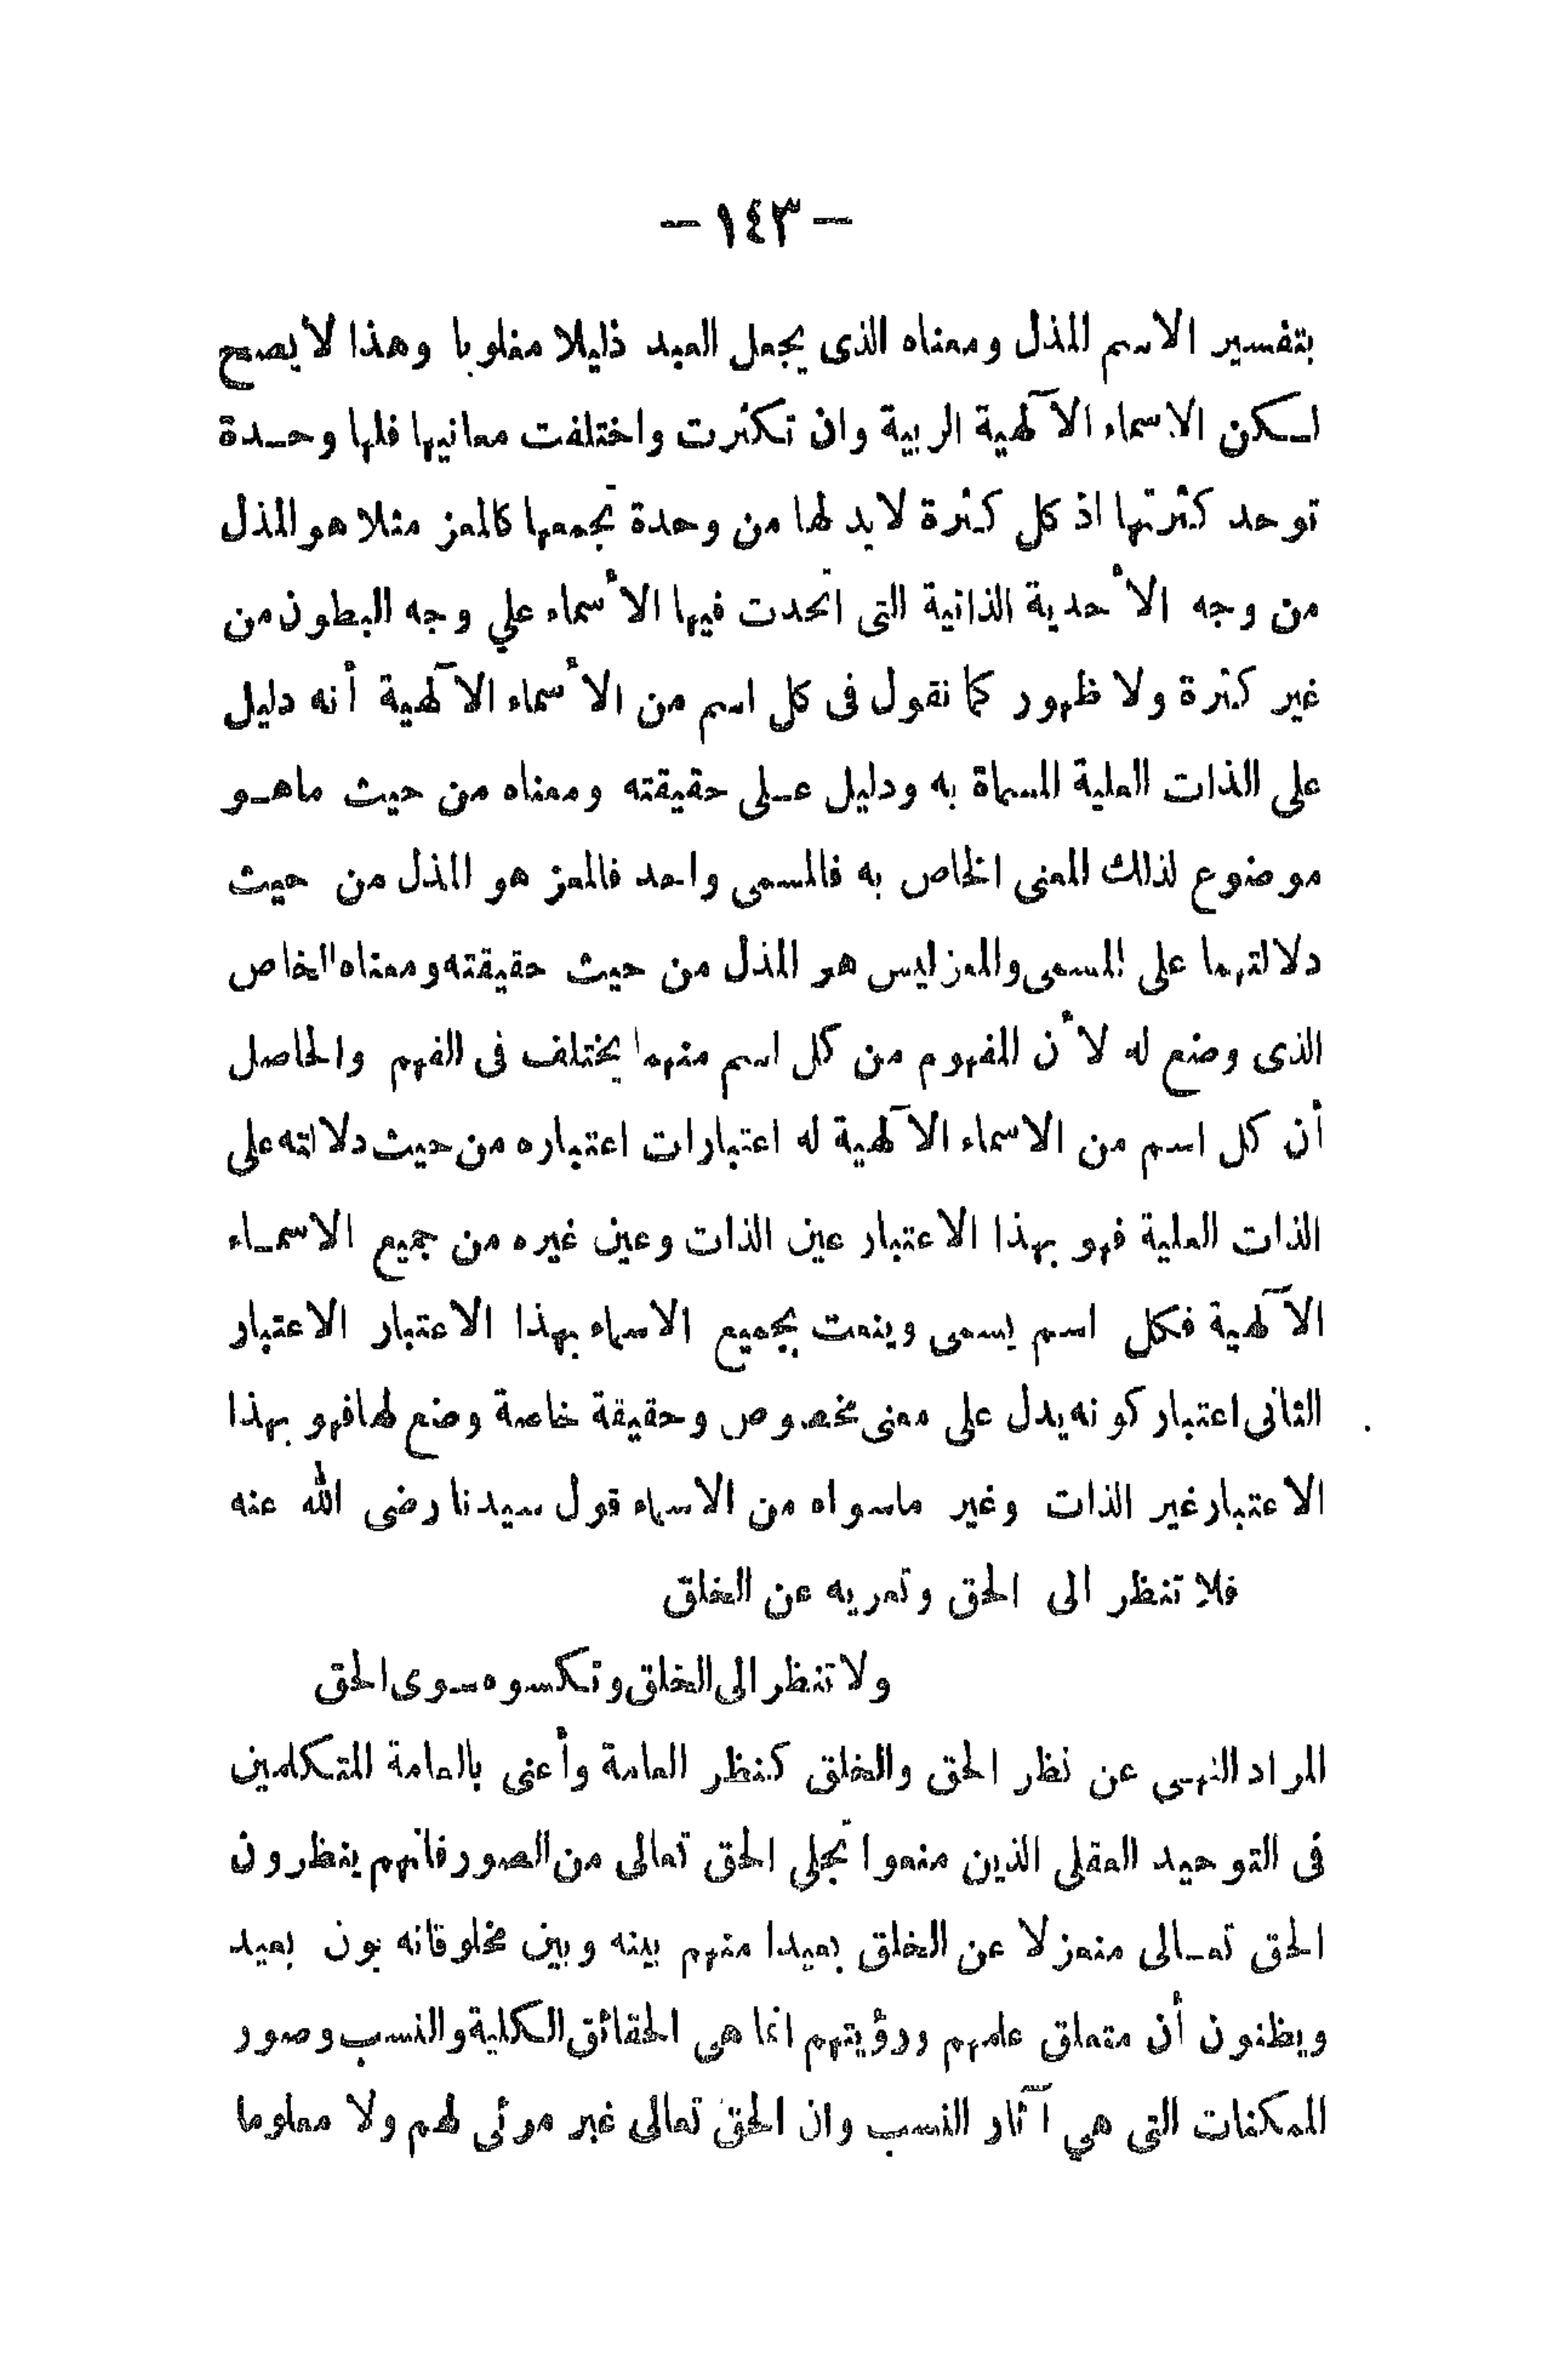 — ١٤٣ —
بتفسير الاسم المذل ومعناه الذى يجعل العبد ذليلا مغلوبا وهذا لا يصح
لـكن الاسماء الآلهية الربية وان تكثرت واختلفت معانيها فلها وحـدة
توحد كثرتها اذ كل كثرة لابد لها من وحدة تجمعها كالمعز مثلا هو المذل
من وجه الأحدية الذاتية التى اتحدت فيها الأسماء علي وجه البطون من
غير كثرة ولا ظهور كما نقول فى كل اسم من الأسماء الآلهية أنه دليل
على الذات العلية المسماة به ودليل عـلى حقيقته ومعناه من حيث ماهـو
موضوع لذلك المعنى الخاص به فالمسمى واحد فالمعز هو المذل من حيث
دلالتهما على المسمى والمعز ليس هو المذل من حيث حقيقته ومعناه الخاص
الذى وضع له لأن المفهوم من كل اسم منهما يختلف فى الفهم والحاصل
أن كل اسم من الاسماء الآلهية له اعتبارات اعتباره من حيث دلالته على
الذات العلية فهو بهذا الاعتبار عين الذات وعين غيره من جميع الاسمـاء
الآلهية فكل اسم يسمى وينعت بجميع الاسماء بهذا الاعتبار الاعتبار
الثانى اعتبار كونه يدل على معنى مخصوص وحقيقة خاصة وضع لها فهو بهذا
الاعتبار غير الذات وغير ماسواه من الاسماء قول سيدنا رضى الله عنه
فلا تنظر الى الحق وتعريه عن الخلق
ولا تنظر الى الخلق وتكسوه سوى الحق
المراد النهي عن نظر الحق والخلق كنظر العامة وأعنى بالعامة المتكلمين
فى التوحيد العقلى الذين منعوا تجلي الحق تعالى من الصور فانهم ينظرون
الحق تعـالى منعزلا عن الخلق بعيدا منهم بينه وبين مخلوقاته بون بعيد
ويظنون أن متعلق علمهم ورؤيتهم انما هى الحقائق الكلية والنسب وصور
الممكنات التى هي آثار النسب وان الحق تعالى غير مرئى لهم ولا معلوما